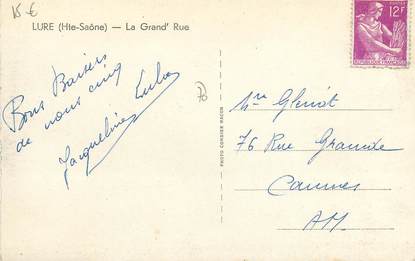 15 €
LURE (Hte-Saône) — La Grand' Rue
12F
REPUBLIQUE FRANÇAISE
Bons Baisers
de nous cinq
Jacqueline
PHOTO COMBIER MACON
76 Rue Grande
Cannes
AM.